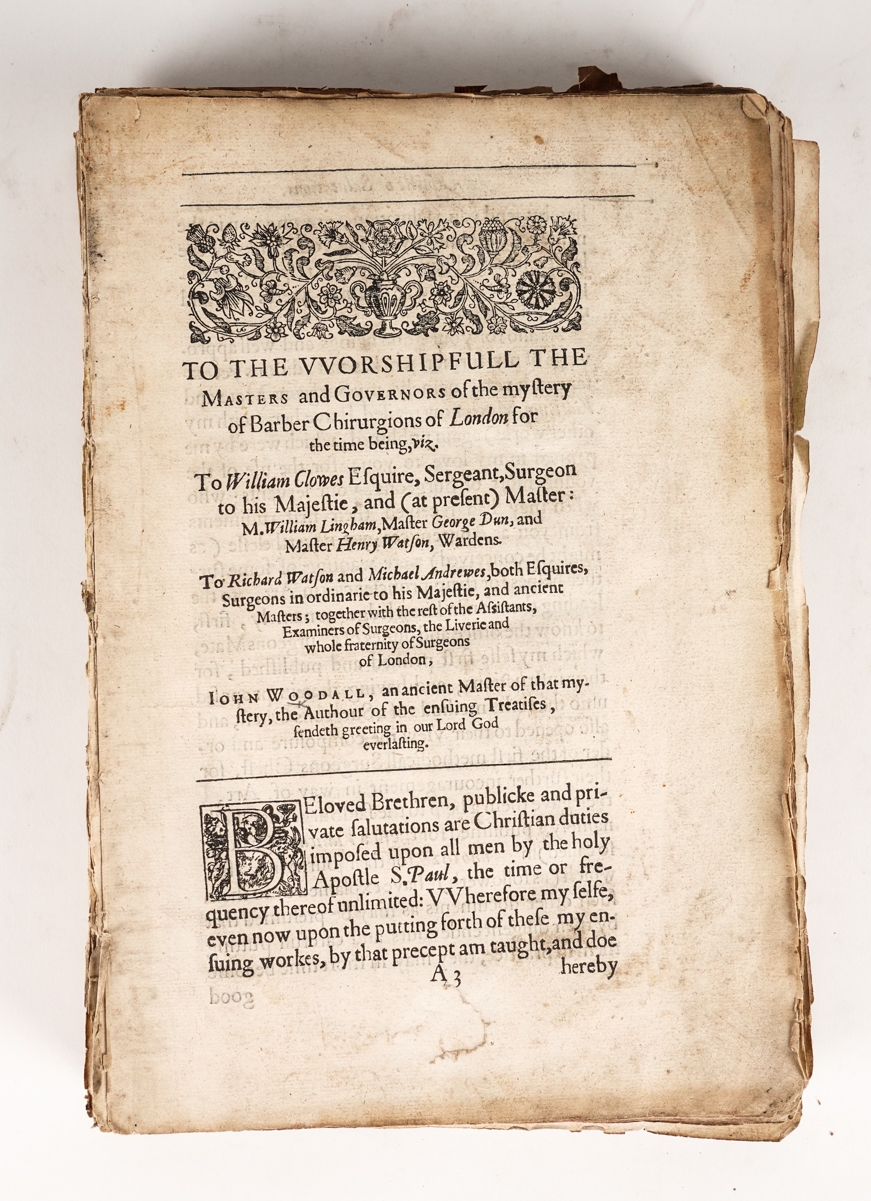 TO THE VVORSHIPFULL THE
MASTERS and GOVERNORS of the myſtery
of Barber Chirurgions of London for
the time being, viz.
To William Clowes Eſquire, Sergeant, Surgeon
to his Majeſtie, and (at preſent) Maſter:
M. William Lingham, Maſter George Dun, and
Maſter Henry Watſon, Wardens.
To Richard Watſon and Michael Andrewes, both Eſquires,
Surgeons in ordinarie to his Majeſtie, and ancient
Maſters; together with the reſt of the Aſsiſtants,
Examiners of Surgeons, the Liverie and
whole fraternity of Surgeons
of London,
IOHN WOODALL, an ancient Maſter of that my-
ſtery, the Authour of the enſuing Treatiſes,
ſendeth greeting in our Lord God
everlaſting.
BEloved Brethren, publicke and pri-
vate ſalutations are Chriſtian duties
impoſed upon all men by the holy
Apoſtle S. Paul, the time or fre-
quency thereof unlimited: VVherefore my ſelfe,
even now upon the putting forth of theſe my en-
ſuing workes, by that precept am taught, and doe
A 3 hereby